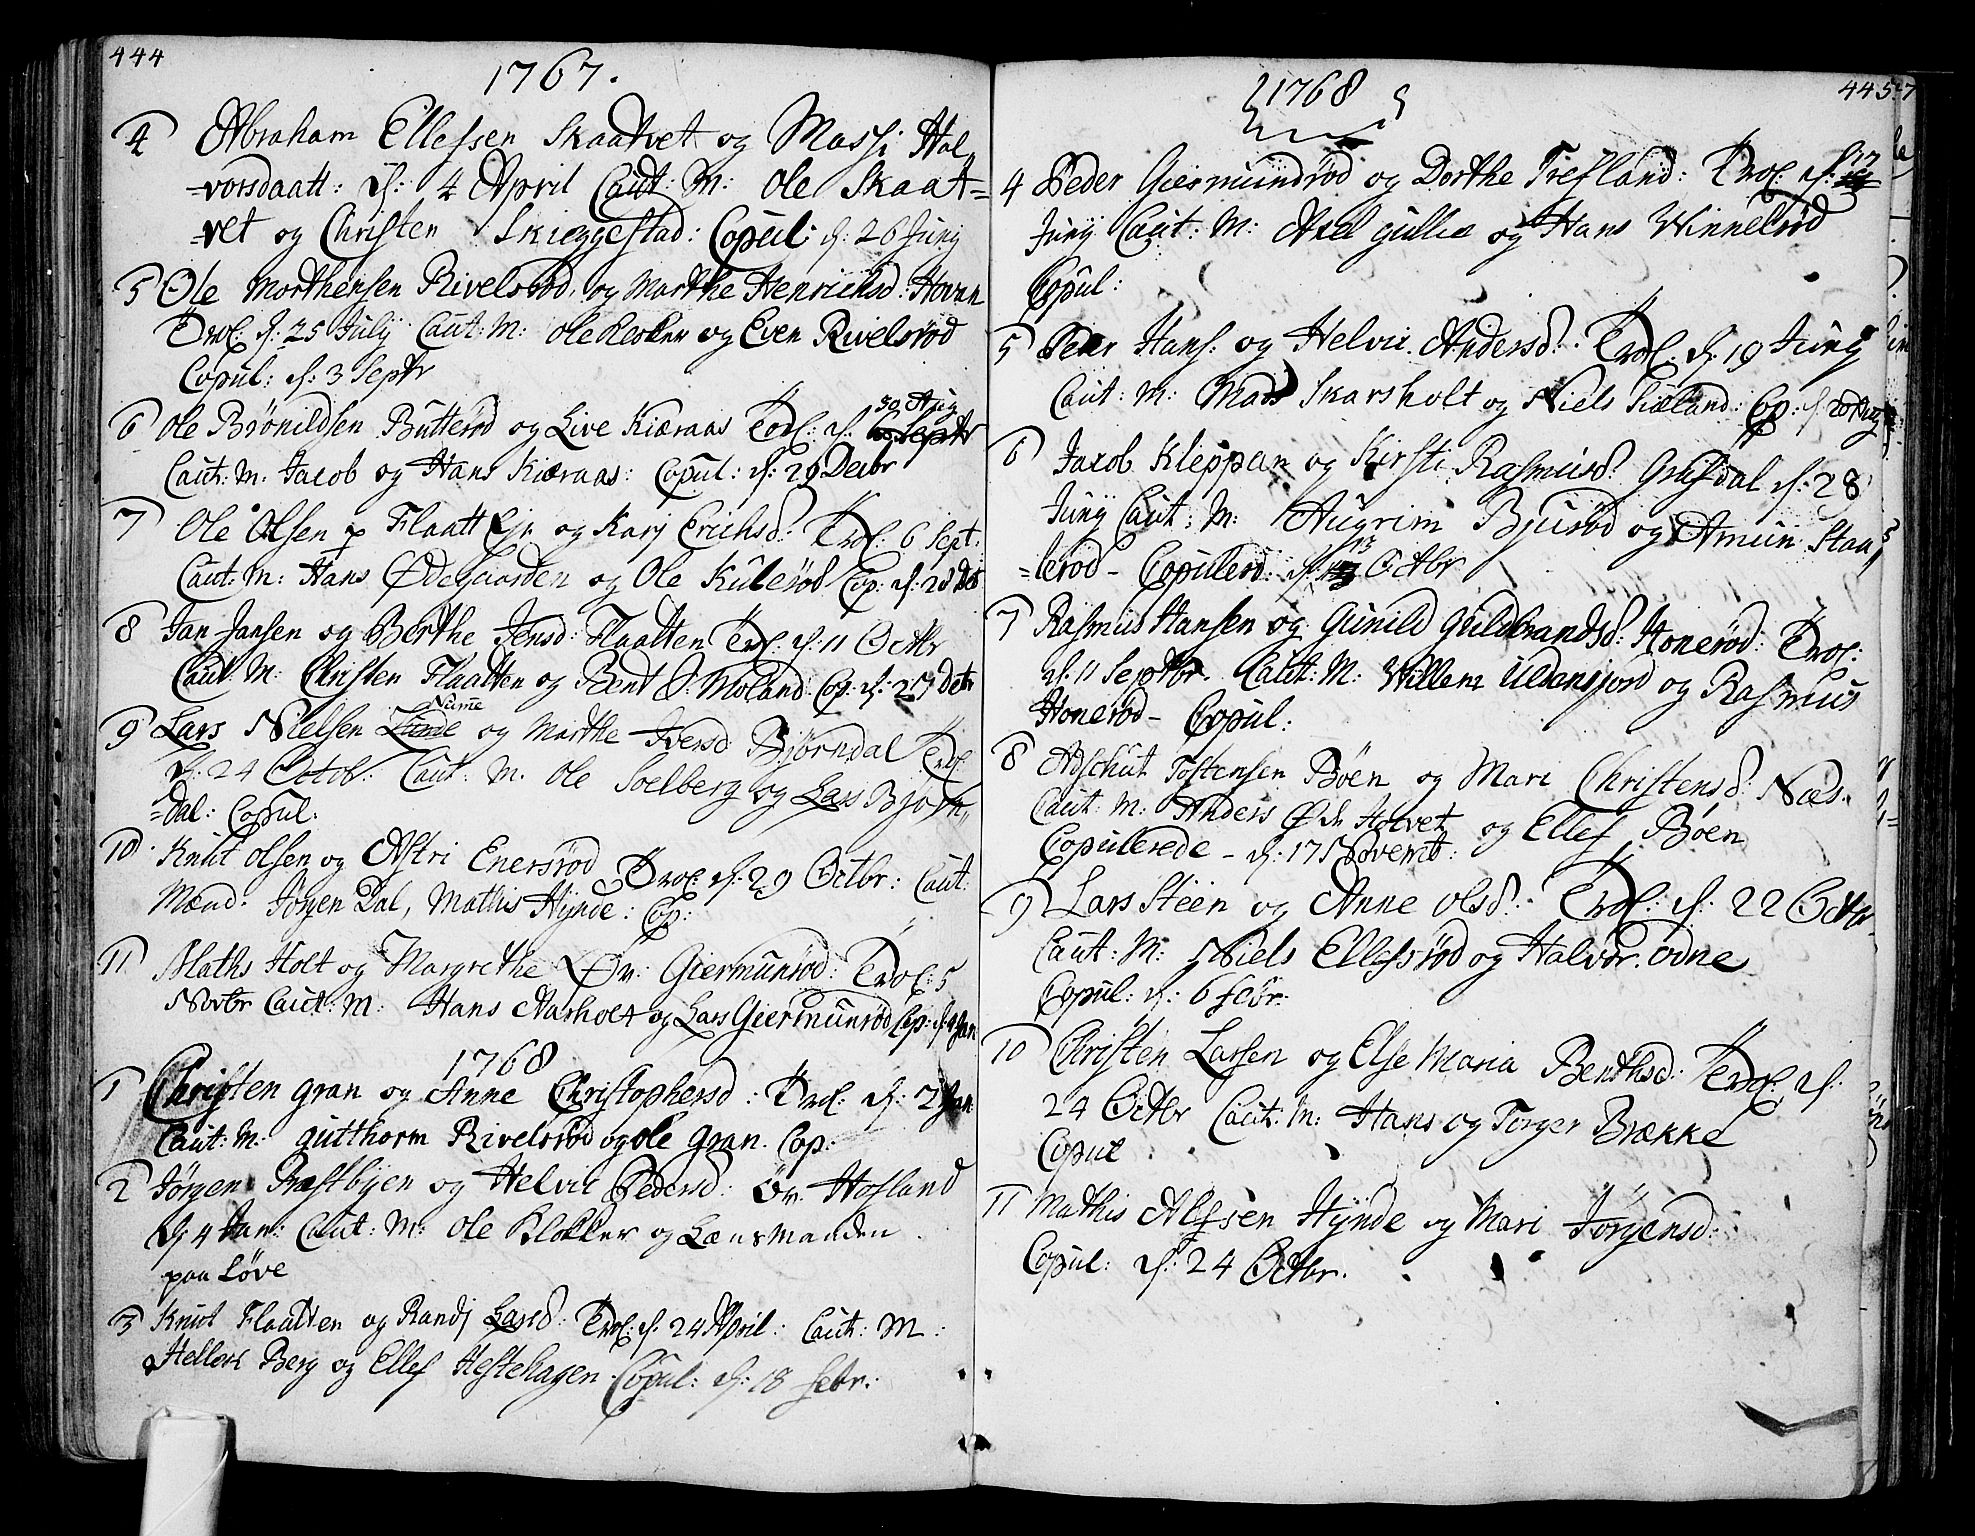 444
1767.
4 Abraham Ellefsen Skaatvet og Massj Hal
-vorsdaatt: d: 4 April Caut: M: Ole Skaat=
=vet og Christen Skieggestad: Copul: d: 26 Juny
5 Ole Morthensen Rivelsrød, og Marthe Henrichsd: Hovan
Trol: d: 25 July Caut: M: Ole og Even Rivelsrød
Copul: d: 3 Septr
30 Aug
6 Ole Brønildsen Butterød og Live Kiæraas Trol: d: Septr
Caut: M. Jacob og Hans Kiæraas: Copul: d: 29 Decbr
7 Ole Olsen p Flaatt Eje og Karj Erichsd: Trol: 6 Sept:
Caut: M: Hans Ødegaarden og Ole Kulerød Cop: d: 28 De
8 Jan Jansen og Berthe Jensd: Flaatten Trol: d: 11 Octbr
Caut: M: Christen Flaatten og Bent S: Moland Cop: d: 27 Detr
Nume
9 Lars Nielsen Lunde og Marthe Iversd Bjørndal Trol:
d: 24 Octob: Caut: M. Ole Solberg og Lars Bjørn,
=dal: Copul.
10. Knut Olsen og Astri Enersrød Trol: d: 29 Octbr: Caut:
Mænd. Jørgen Dal, Mathis Hynde: Cop:
11 Maths Holt og Margrethe Øv: Giermunrød: Trol: 5
Novbr Caut: M: Hans Aasholt og Lars Giermunrød Cop: d: 9 Jan
1768
1 Christen Gran og Anne Christophersd: Trol: d: 2 Jan
Caut: M: Gutthorm Rivelsrød og Ole Gran. Cop:
2 Jørgen Præstbyen og Helvic Pedersd: Øv: Hofland
d 4 Jan: Caut: M: Ole Klokker og Lænsmanden
paa Løve
3 Knut Flaatten og Randj Larsd: Trol: d: 24 April: Caut: M:
Hellek Berg og Ellef Hestehagen. Copul: d: 18 Febr:
445
1768
17
4 Peder Giermundrød og Dorthe Trefland: Trol: d:
Juny Caut: M: Axel Gullie og Hans Winnelrød
Copul:
5 Peder Hans: og Helvic Andersd: Trol: d: 19 Juny
Caut: M: Mads Skarsholt og Niels Fiæland: Cop: d: 20 Aug
6 Jacob Kleppan og Kirsti Rasmusd: Grufdal d: 28
Juny Caut: M: Augrim Bjurød og Amun Staa
=lerød- Copulerd: d: 13 Octbr
7 Rasmus Hansen og Gunild Guldbrandsd: Honerød: Trol:
d: 11 Septbr. Caut: M: Willem Ildensjord og Rasmus
Honerød- Copul:
8 Adschut Tostensen Bøen og Mari Christensd: Næs.
Caut: M: Anders Holvet og Ellef Bøen
Copulerede- d: 17 Novemb:
9 Lars Steen og Anne Olsd: Trol: d: 22 Octbr
Caut: M: Niels Ellefsrød og Halvor Odne
Copul: d: 6 Febr:
10 Christen Larsen og Else Maria Benthsd: Trol: d:
24 Octbr Caut: M: Hans og Torger Brække
Copul
11 Mathis Alfsen Hynde og Mari Jørgensd:
Copul: d: 24 Octbr.